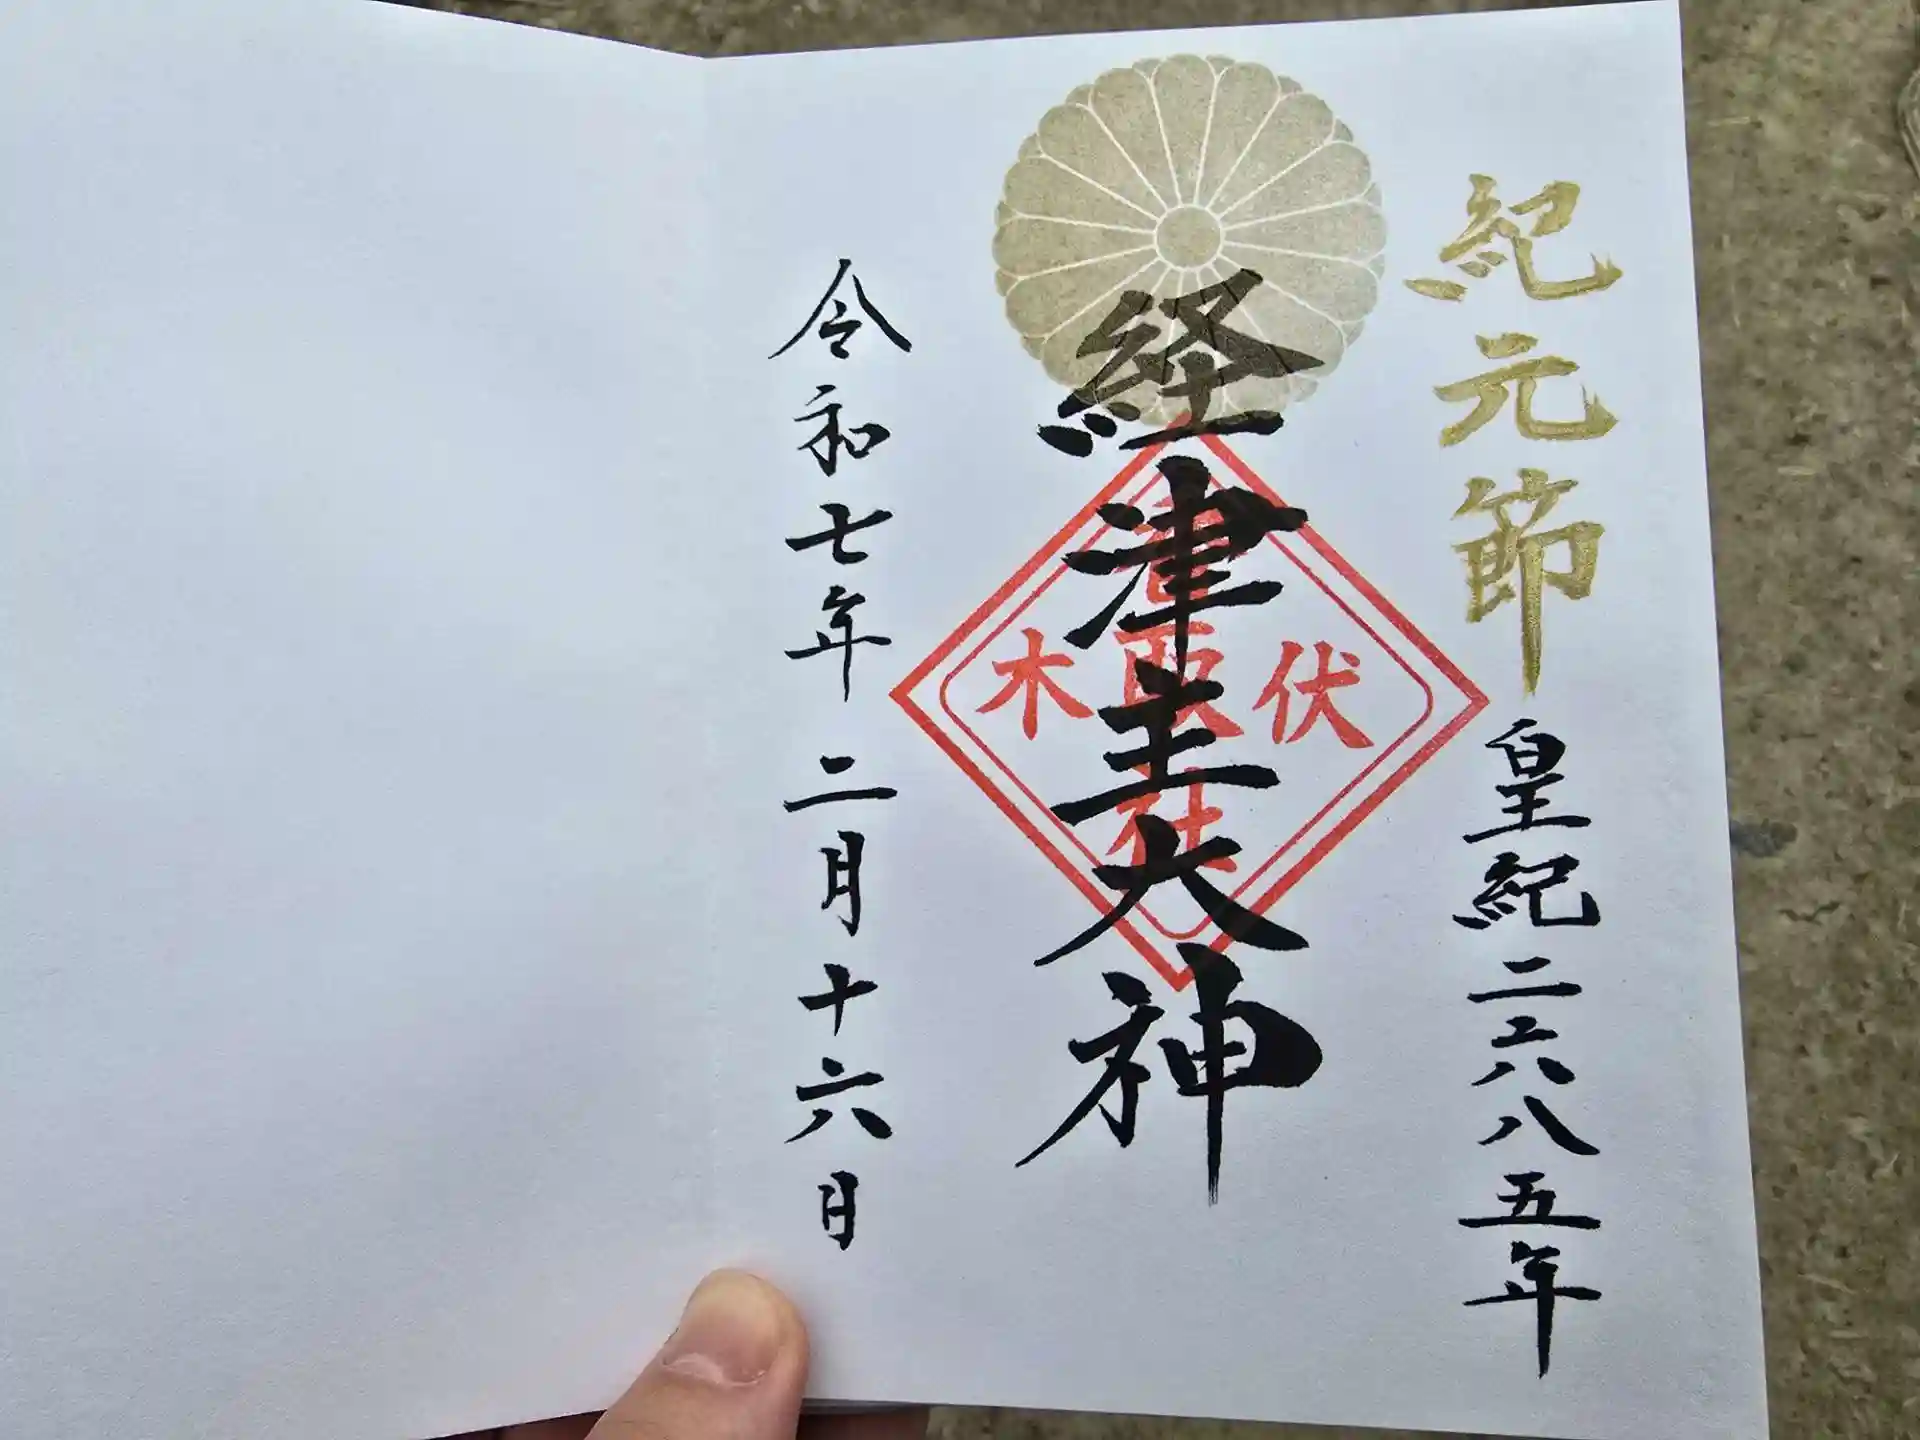 紀元節
皇紀二六八五年
経津主大神
伏
香取社
木
令和七年二月十六日